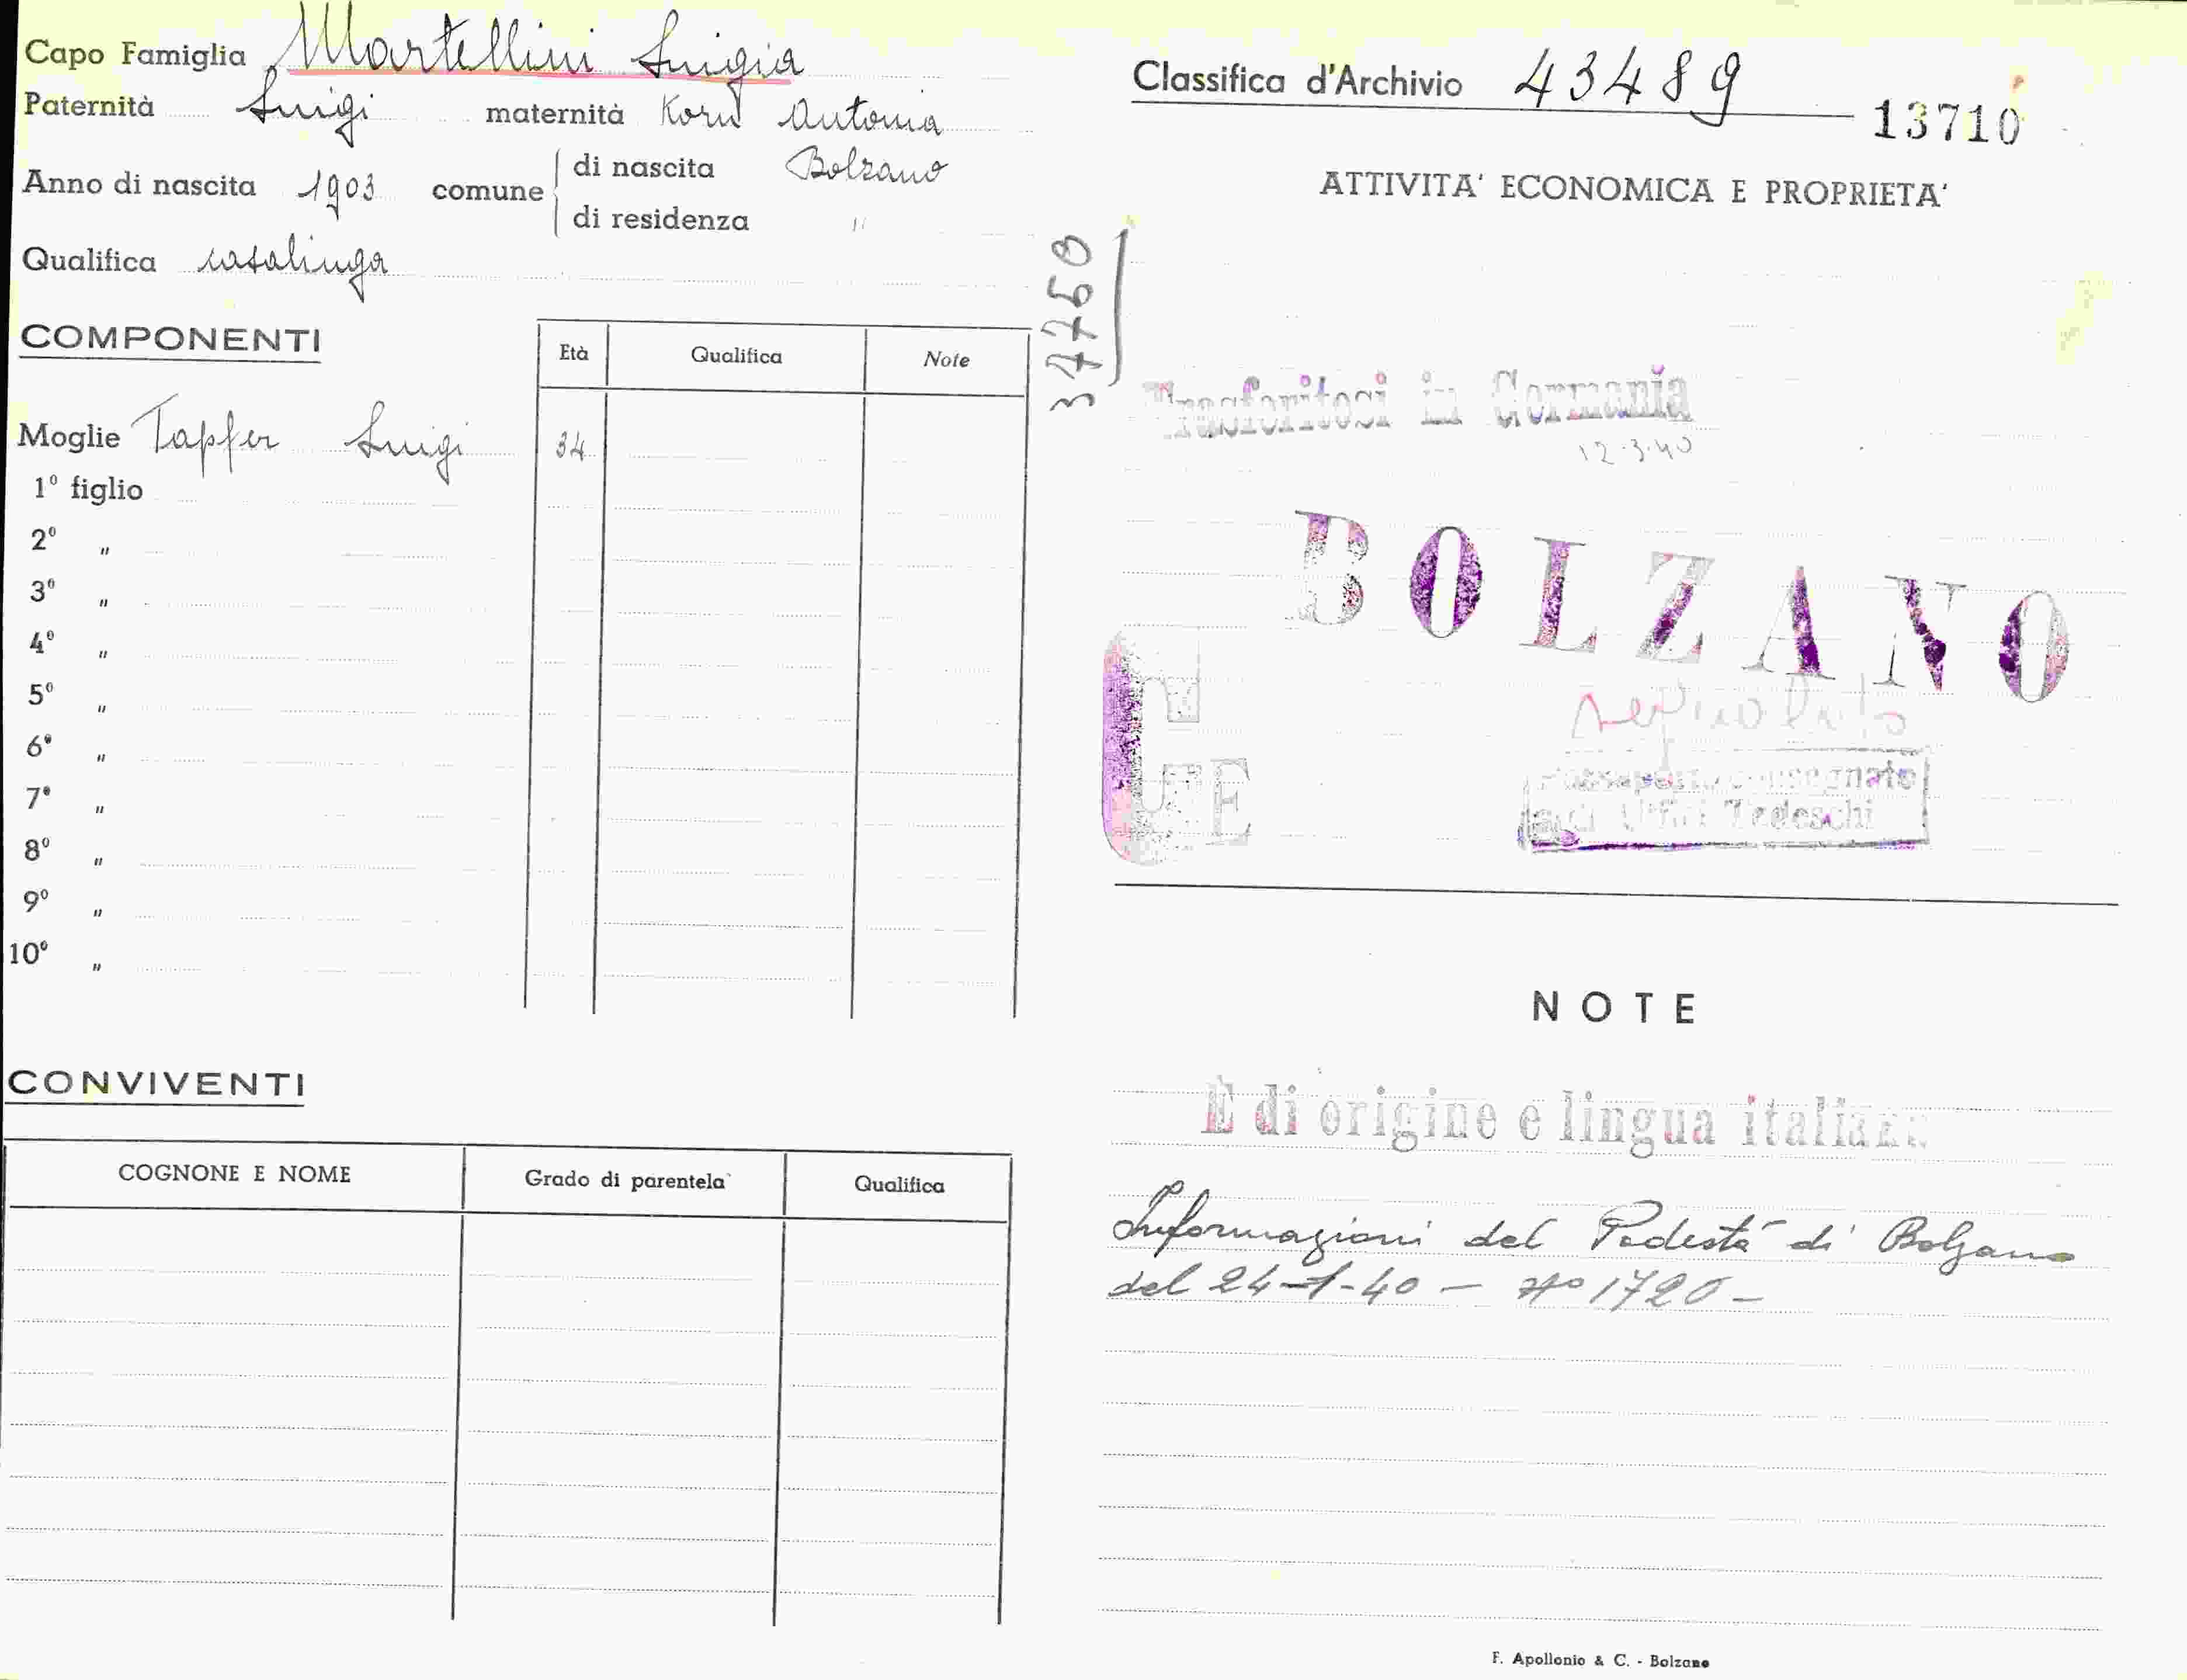 Capo Famiglia Martellini Luigia
Paternità Luigi maternità Korn Antonia
Anno di nascita 1903 comune di nascita Bolzano
di residenza "
Qualifica casalinga
COMPONENTI
Età Qualifica Note
Moglie Tapfer Luigi 34
1º figlio
2º "
3º "
4º "
5º "
6º "
7º "
8º "
9º "
10º "
CONVIVENTI
COGNONE E NOME Grado di parentela Qualifica
Classifica d'Archivio 43489
13710
ATTIVITA' ECONOMICA E PROPRIETA'
37760
Trasferitosi in Germania
12.3.40
BOLZANO
Uffici Tedeschi
NOTE
È di origine e lingua italiana
Informazioni del Podestà di Bolzano
del 24-1-40 — Nº 1720 —
F. Apollonio & C. - Bolzano